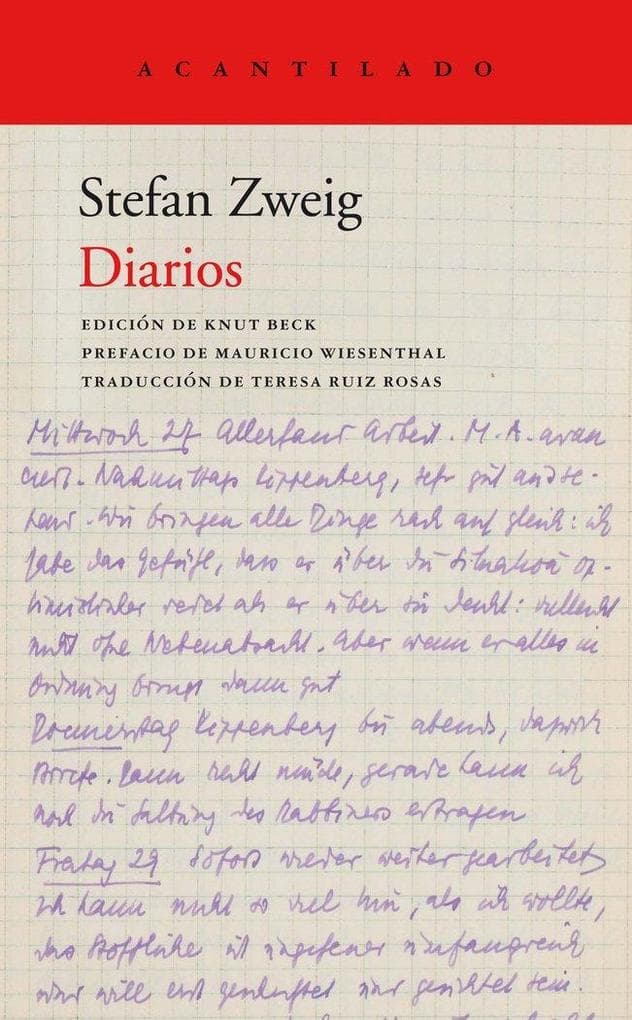 ACANTILADO
Stefan Zweig
Diarios
EDICIÓN DE KNUT BECK
PREFACIO DE MAURICIO WIESENTHAL
TRADUCCIÓN DE TERESA RUIZ ROSAS
Mittwoch 27 Allerhand Arbeit. M. A. avan
ciert. Nachmittags Kippenberg, sehr gut
Wir bringen alle Dinge rasch auf gleich: ich
habe das Gefühl, dass er über die Situation op-
timistischer redet als er über sie denkt: vielleicht
nicht ohne Nebenabsicht. Aber wenn er alles in
Ordnung bringt dann gut
Donnerstag Kippenberg bis abends, dazwisch
Briefe. Dann recht müde, gerade kann ich
noch die des Rabbiners ertragen
Freitag 29 Sofort wieder weitergearbeitet
Ich kann nicht so viel tun, als ich wollte,
das Stoffliche ist ungeheuer umfangreich
und will erst und gesichtet sein.